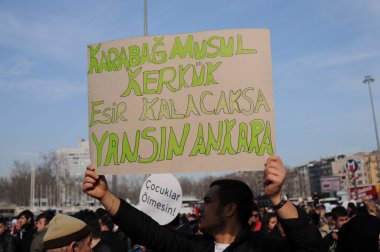 KARABAĞ MUSUL
KERKÜK
ESİR KALACAKSA
YANSIN ANKARA
Çocuklar
Ölmesin!